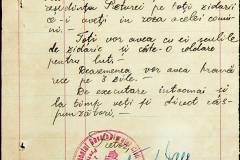 rezistența Pieturei pe toți zidarii
ce-i aveți in raza acelei comu-
ni.
Toți vor avea cu ei sculele
de zidarie și câte-o caldare
pentru lut.
Deasemenea vor avea hrană
rece pe 3 zile.
De executare intocmai și
la timp veți fi direct răs-
punzători.